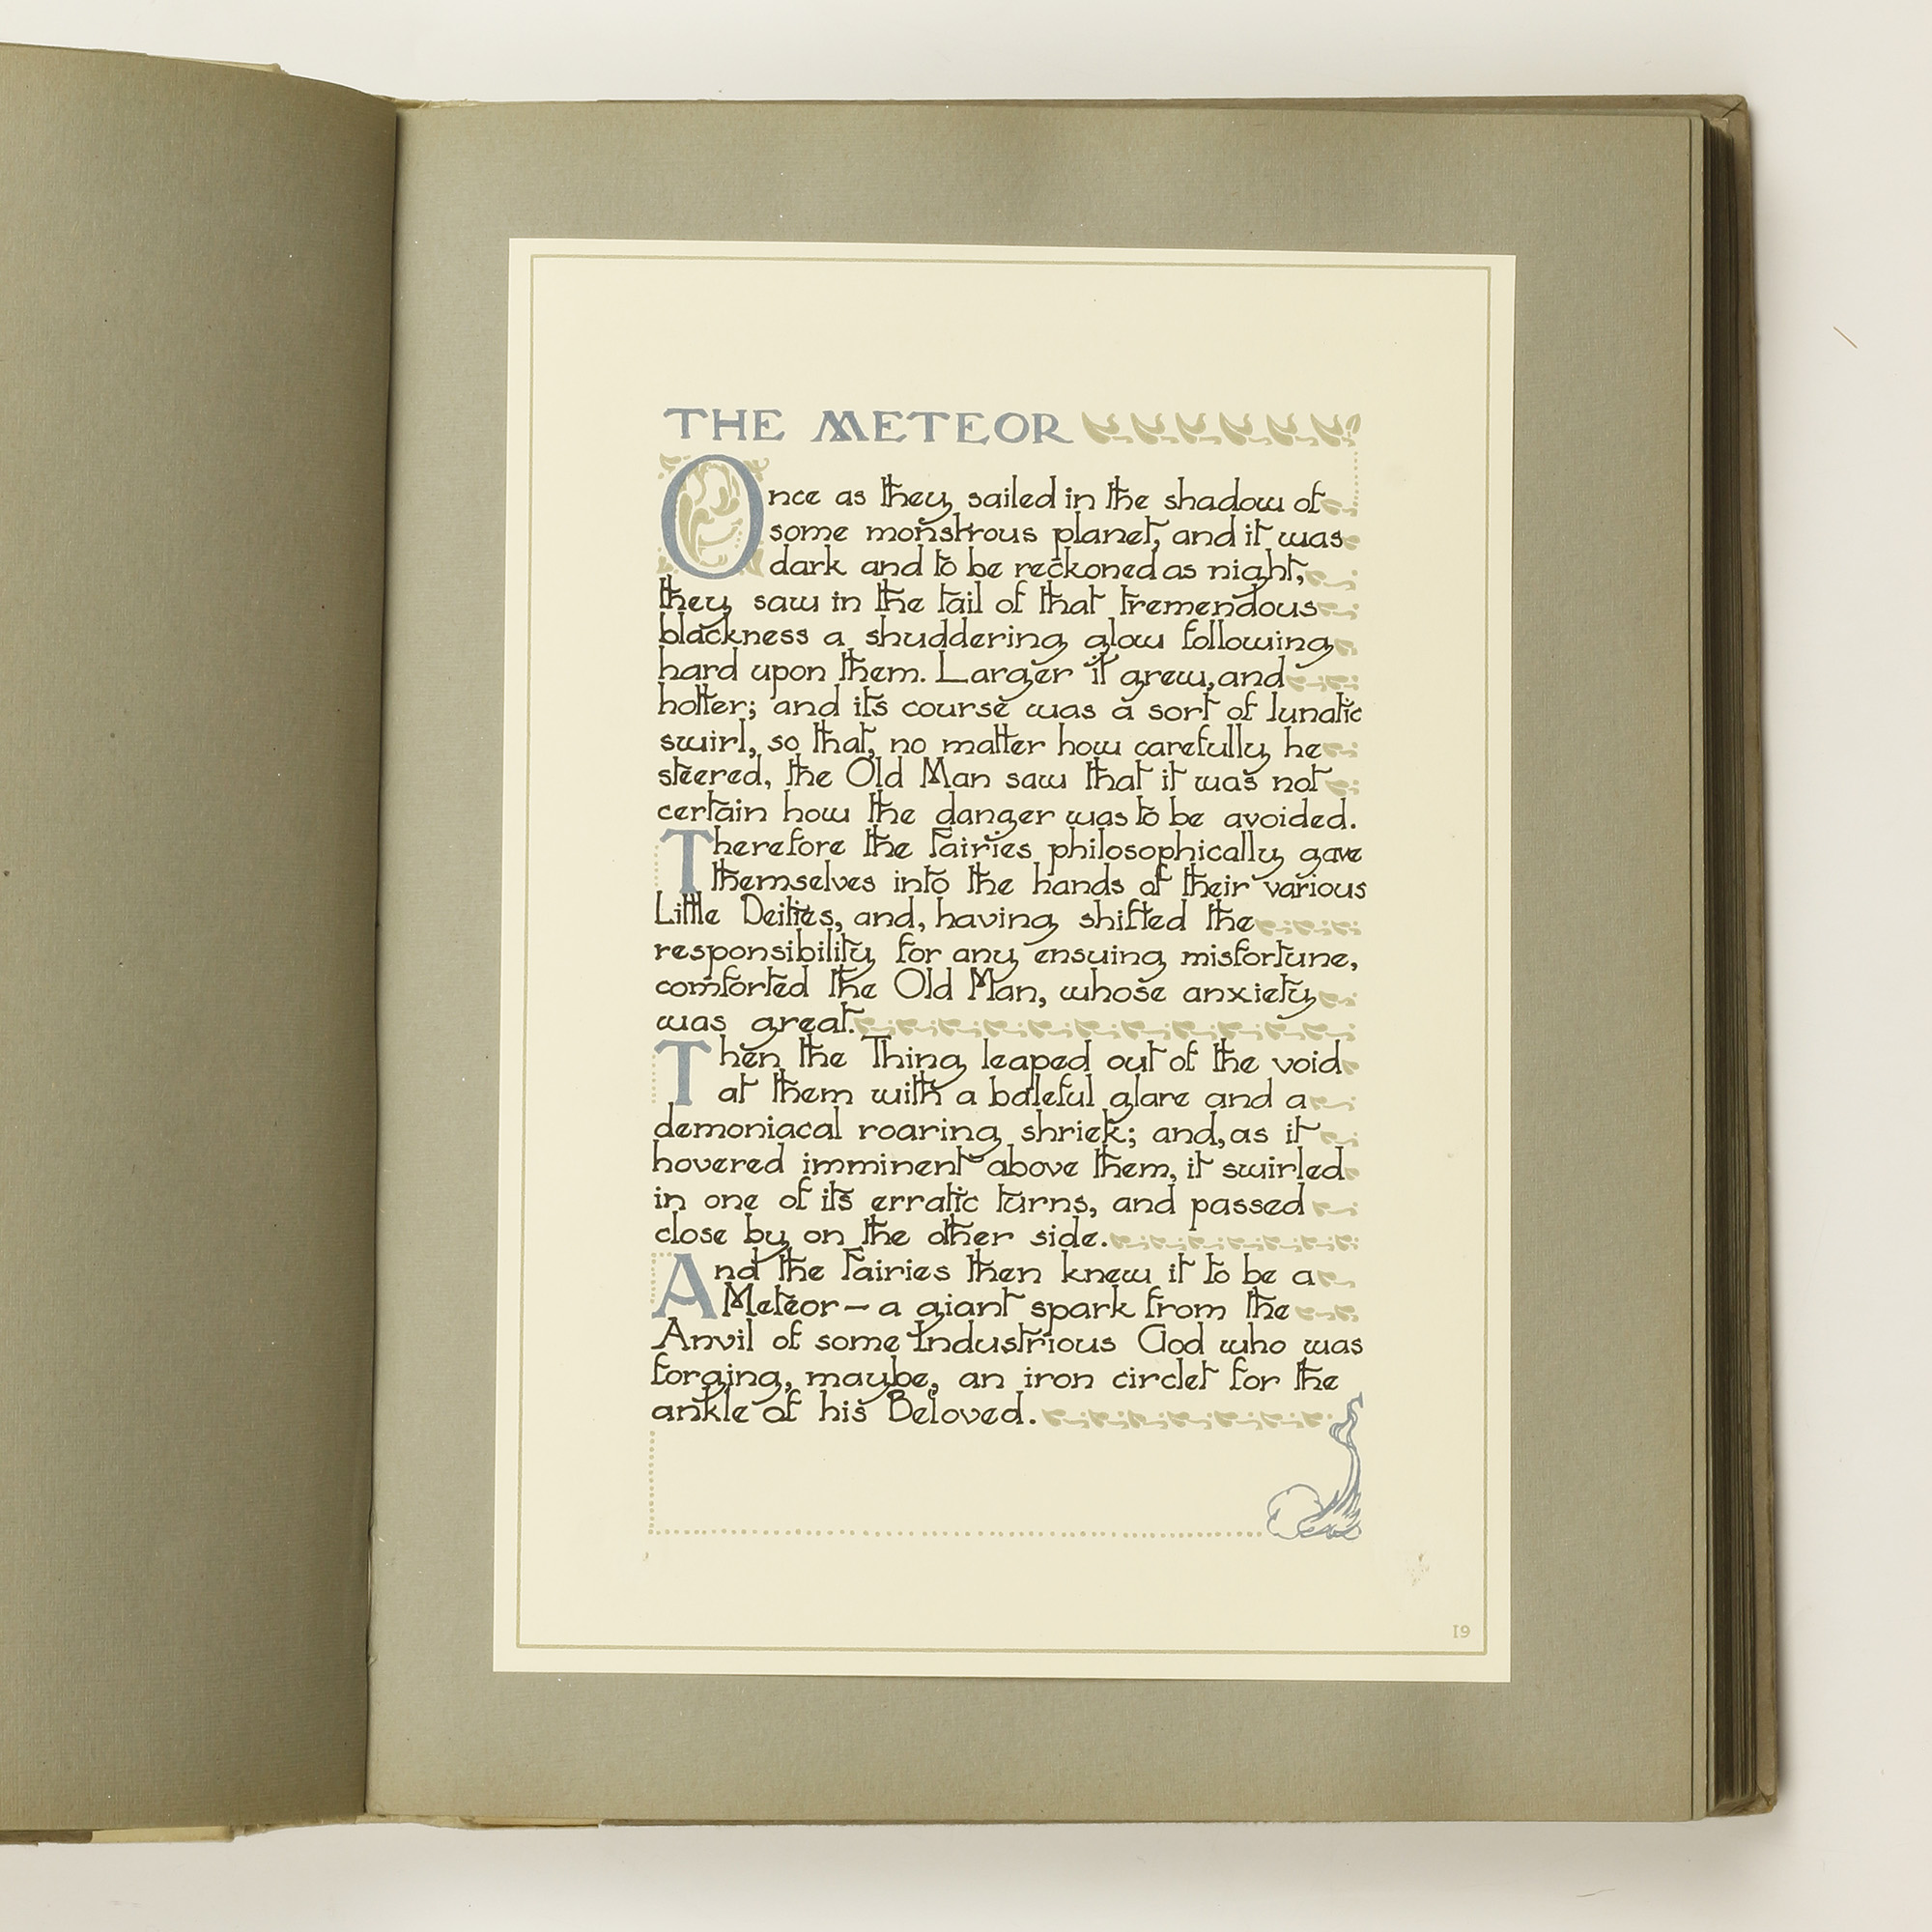 THE METEOR
Once as they sailed in the shadow of
some monstrous planet, and it was
dark and to be reckoned as night,
they saw in the tail of that tremendous
blackness a shuddering glow following
hard upon them. Larger it grew, and
hotter; and its course was a sort of lunatic
swirl, so that, no matter how carefully he
steered, the Old Man saw that it was not
certain how the danger was to be avoided.
Therefore the Fairies philosophically gave
themselves into the hands of their various
Little Deities, and, having shifted the
responsibility for any ensuing misfortune,
comforted the Old Man, whose anxiety
was great.
Then the Thing leaped out of the void
at them with a baleful glare and a
demoniacal roaring shriek; and, as it
hovered imminent above them, it swirled
in one of its erratic turns, and passed
close by on the other side.
And the Fairies then knew it to be a
Meteor — a giant spark from the
Anvil of some Industrious God who was
forging, maybe, an iron circlet for the
ankle of his Beloved.
19